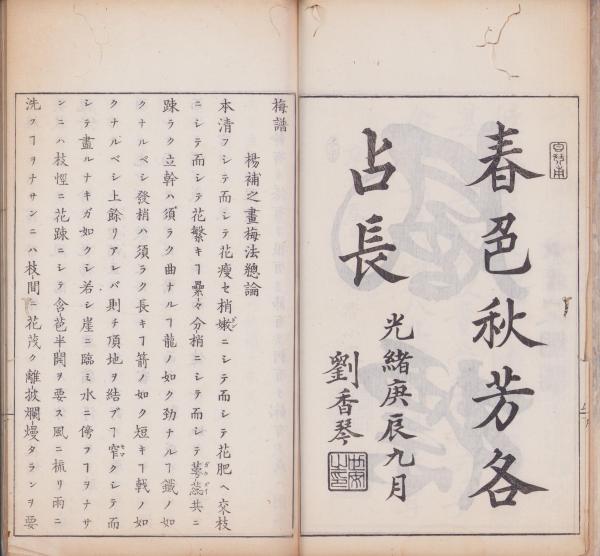 春色秋芳各
占長
光緒庚辰九月
劉香琴
梅譜
楊補之畫梅法總論
本清フシテ而シテ花瘦セ梢嫩ニシテ而シテ花肥ヘ交枝
ニシテ而シテ花繁キヿ纍々分梢ニシテ而シテ萼蕊共ニ
踈ラク立幹ハ須ラク曲ナルヿ龍ノ如ク勁ナルヿ鐵ノ如
クナルベシ發梢ハ須ラク長キヿ箭ノ如ク短キヿ戟ノ如
クナルベシ上餘リアレバ則チ頂地ヲ結ブヿ窄クシテ而
シテ盡ルナキガ如クシ若シ崖ニ臨ミ水ニ傍フヿヲナサ
ンニハ枝怪ニ花踈ニシテ含芭半開ヲ要ス風ニ梳リ雨ニ
洗フヿヲナサンニハ枝間ニ花茂ク離披爛熳タランヲ要